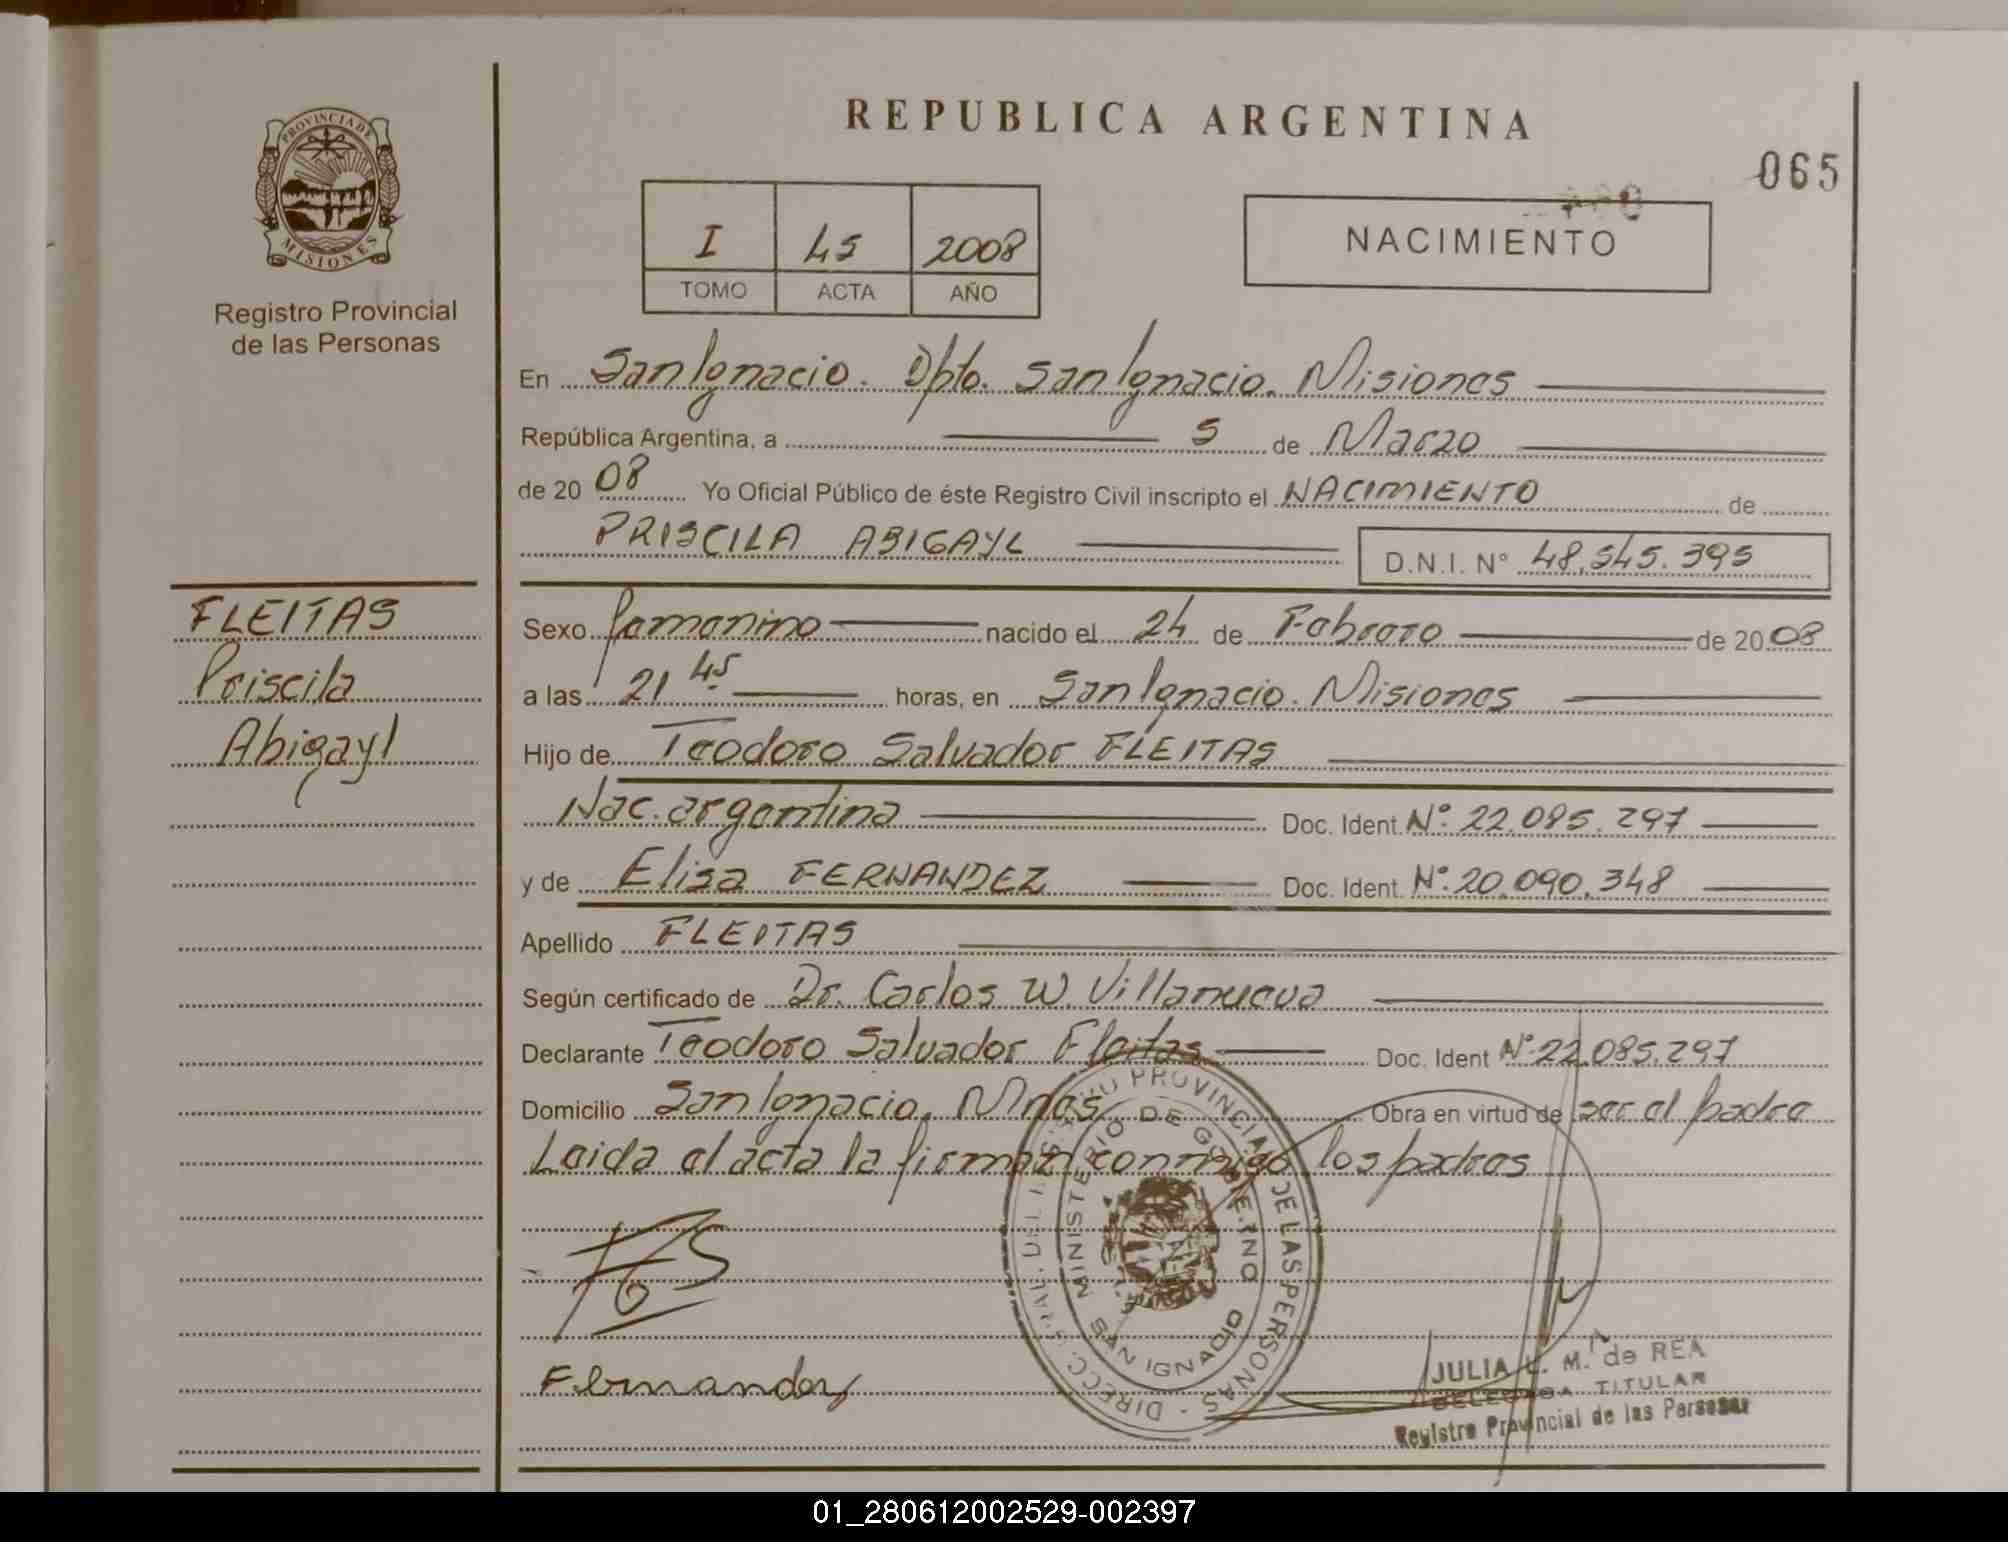 REPUBLICA ARGENTINA
065
PROVINCIA DE
MISIONES
Registro Provincial
de las Personas
I 45 2008
TOMO ACTA AÑO
NACIMIENTO
En San Ignacio. Dpto. San Ignacio. Misiones
República Argentina, a 5 de Marzo
de 20 08 Yo Oficial Público de éste Registro Civil inscripto el NACIMIENTO de
PRISCILA ABIGAYL D.N.I. N° 48.545.395
FLEITAS
Priscila
Abigayl
Sexo femenino nacido el 24 de Febrero de 20 08
a las 21 45 horas, en San Ignacio. Misiones
Hijo de Teodoro Salvador FLEITAS
Nac. argentina Doc. Ident. N°. 22.085.297
y de Elisa FERNANDEZ Doc. Ident. N°. 20.090.348
Apellido FLEITAS
Según certificado de Dr. Carlos W. Villanueva
Declarante Teodoro Salvador Fleitas Doc. Ident N° 22.085.297
Domicilio San Ignacio, Mnes Obra en virtud de ser el padre
Leida el acta la firman conmigo los padres
Fernandez
MINISTERIO DE GOBIERNO
SAN IGNACIO
PROVINCIAL DE LAS PERSONAS
JULIA L. M. de REA
DELEGADA TITULAR
Registro Provincial de las Personas
01_280612002529-002397